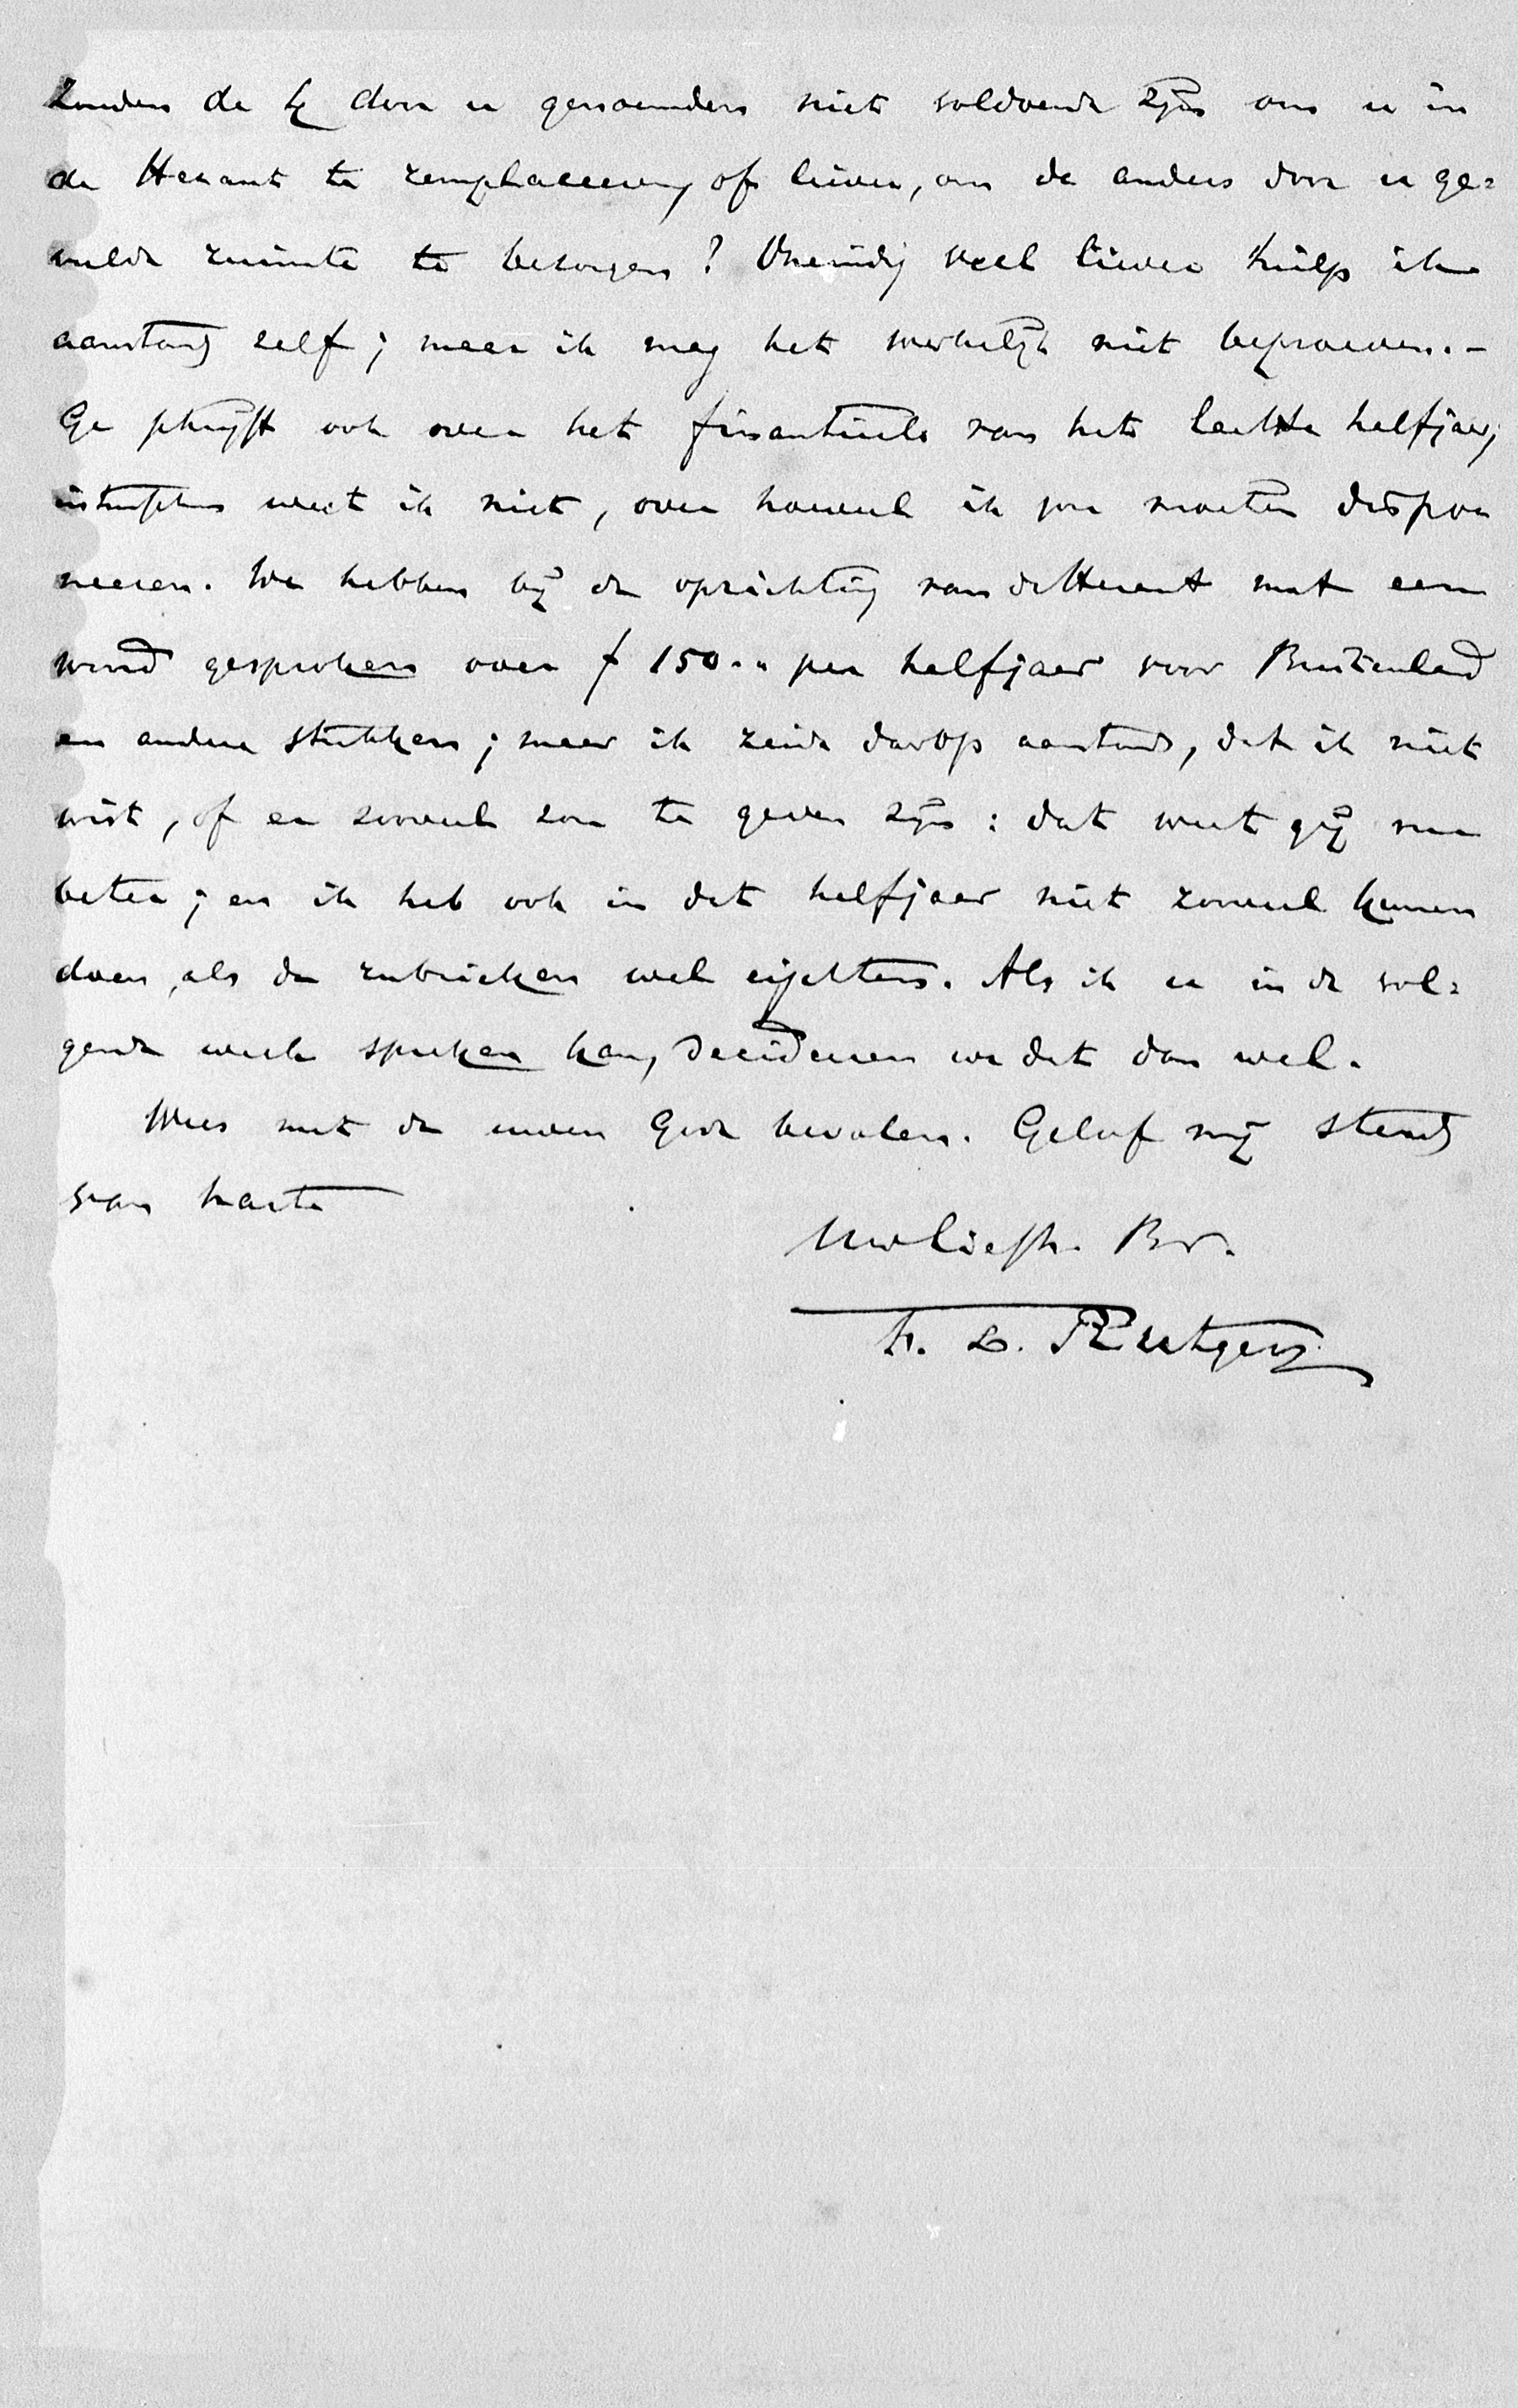 Zouden de 4 door u genoemden niet voldoende zijn om u in
de Heraut te remplaceeren, of liever, om de anders door u ge=
vulde ruimte te bezorgen? Oneindig veel liever hielp ik
aanstonds zelf; maar ik mag het werkelijk niet beproeven.-
Ge schrijft ook over het finantieele van het laatste halfjaar;
intusschen weet ik niet, over hoeveel ik zou moeten dispo
neeren. We hebben bij de oprichting van de Heraut met een
woord gesproken over f 150.. per halfjaar voor Buitenland
en andere stukken; maar ik zeide daarop aanstonds, dat ik niet
wist, of er zooveel zou te geven zijn: dat weet gij nu
beter; en ik heb ook in dit halfjaar niet zooveel kunnen
doen, als de rubrieken wel eischten. Als ik u in de vol=
gende week spreken kan, decideeren we dat dan wel.
Wees met de uwen Gode bevolen. Geloof mij steeds
van harte
Uw liefh. Br.
F. L. Rutgers